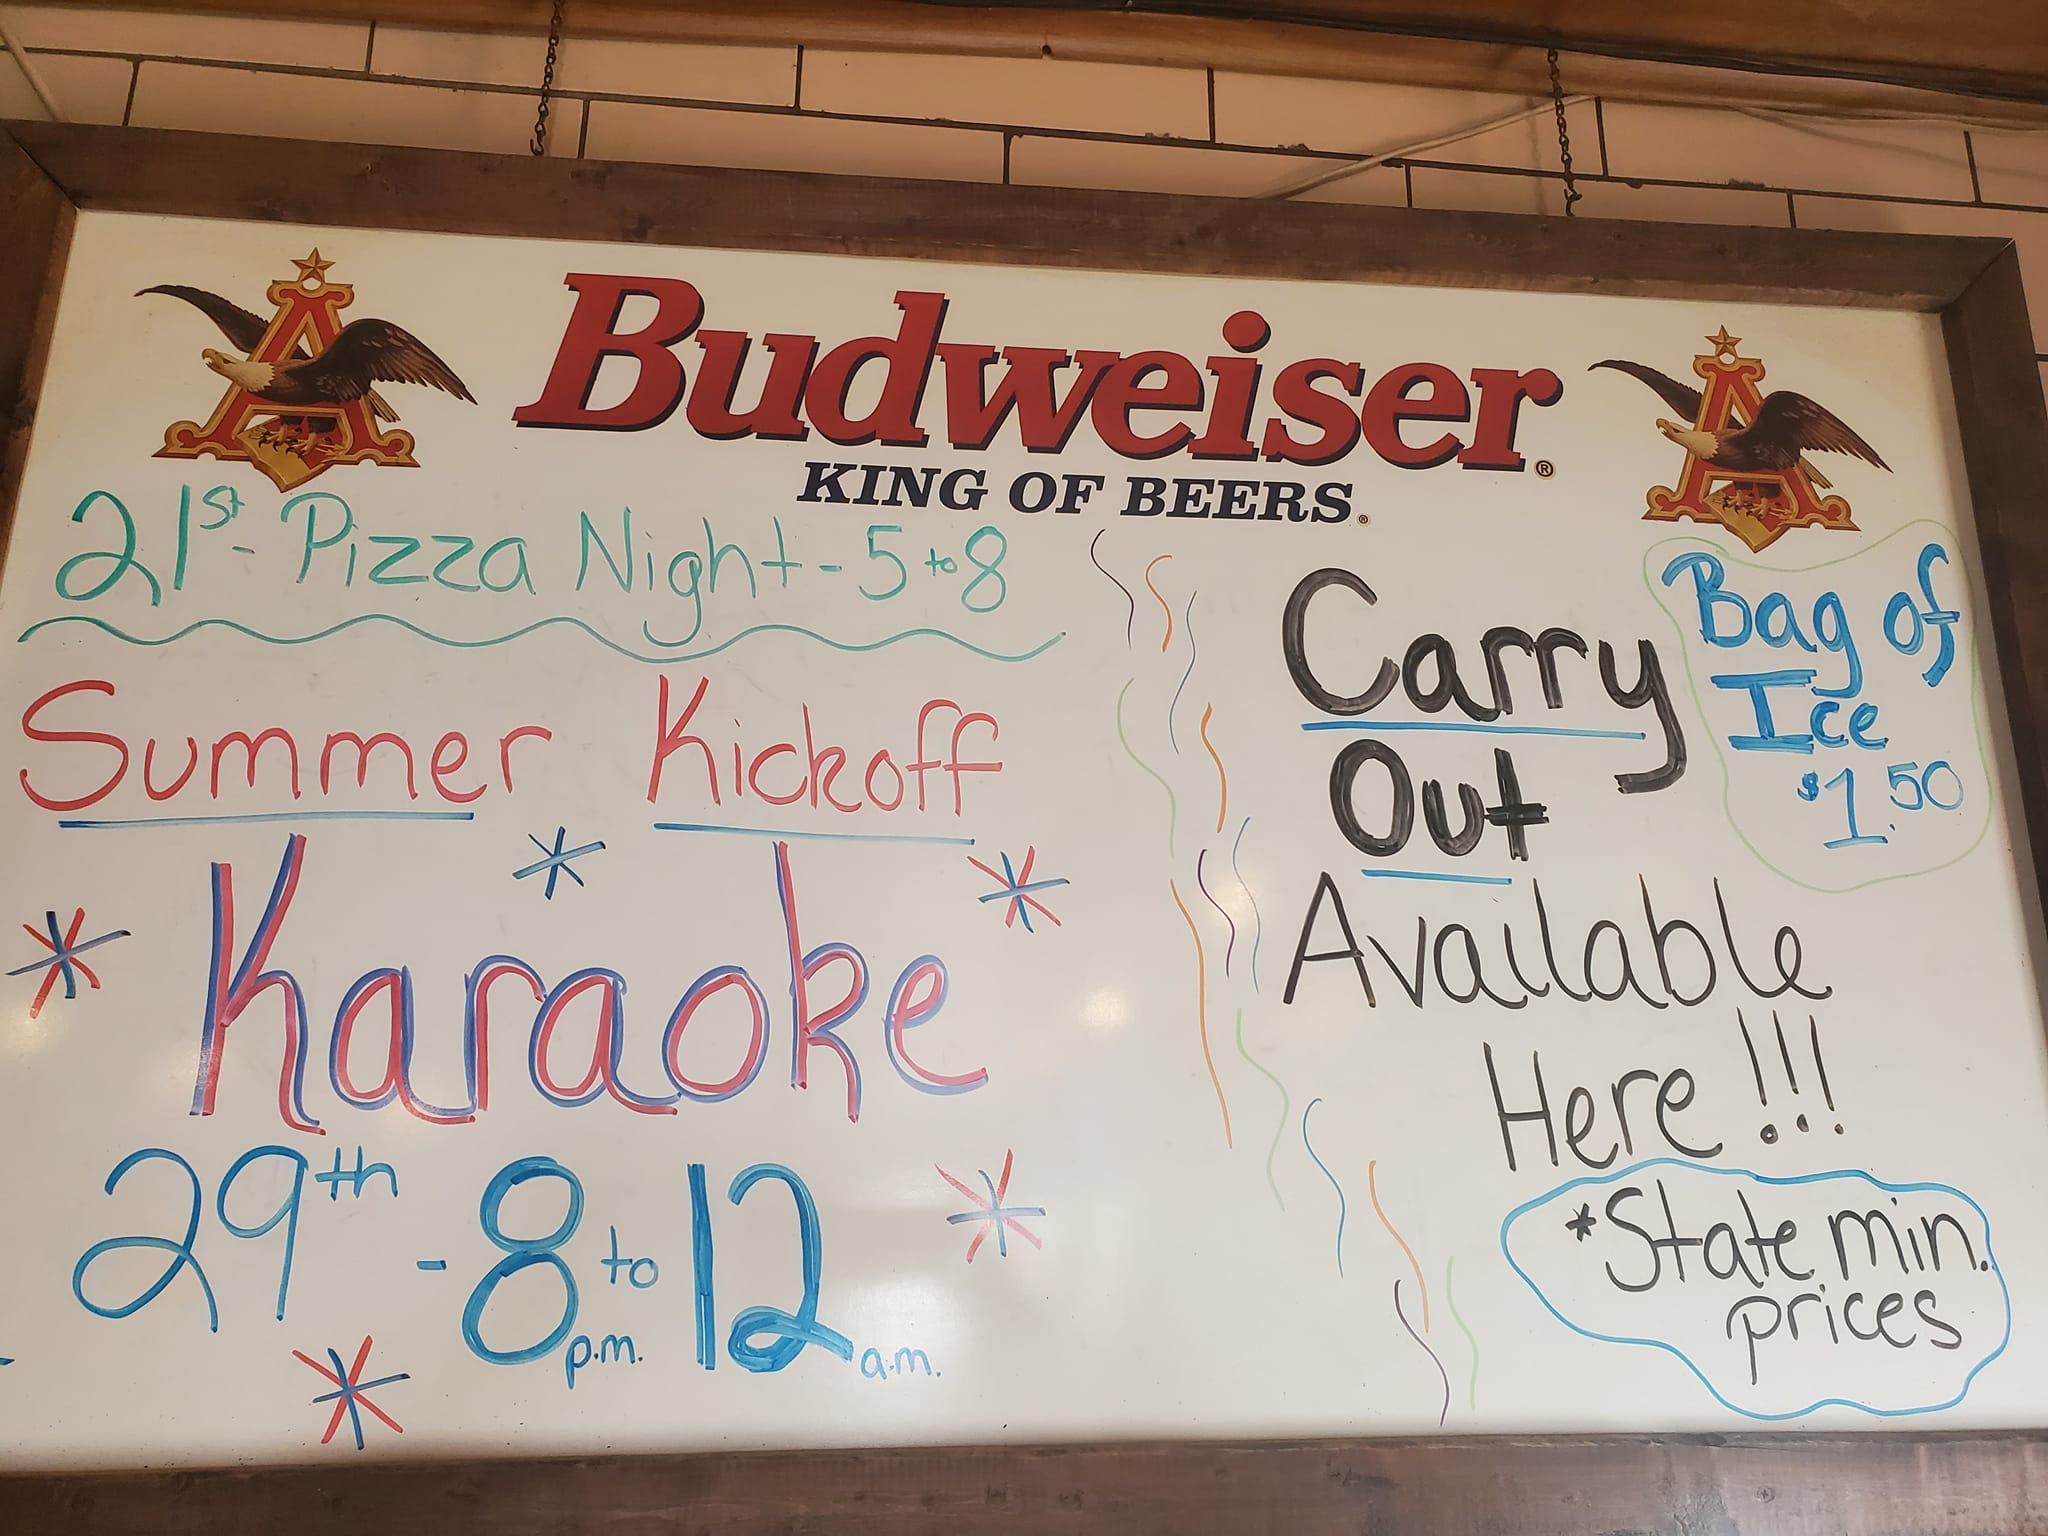 Budweiser®
KING OF BEERS®
21st - Pizza Night - 5 to 8
Summer Kickoff
Karaoke
29th - 8 p.m. to 12 a.m.
Carry
Out
Available
Here!!!
Bag of
Ice
$1.50
*State min.
prices